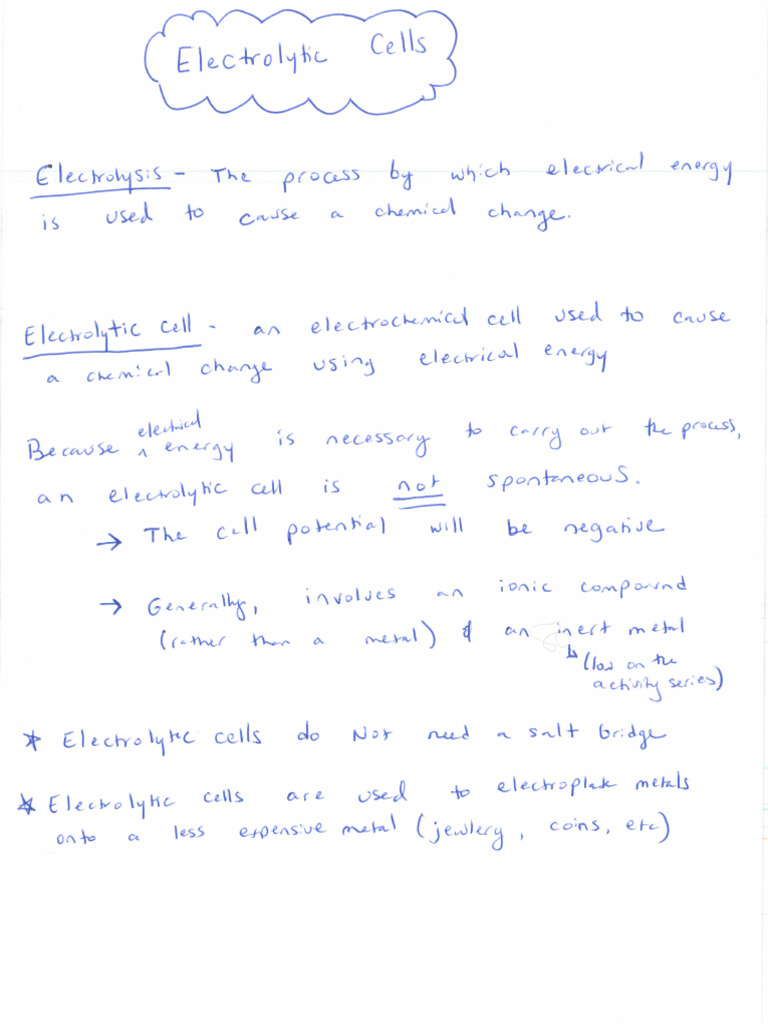 Electrolytic Cells
Electrolysis - The process by which electrical energy
is used to cause a chemical change.
Electrolytic cell - an electrochemical cell used to cause
a chemical change using electrical energy
electrical
Because ^ energy is necessary to carry out the process,
an electrolytic cell is not spontaneous.
→ The cell potential will be negative
→ Generally, involves an ionic compound
(rather than a metal) & an inert metal
↳ (low on the
activity series)
* Electrolytic cells do Not need a salt bridge
* Electrolytic cells are used to electroplate metals
onto a less expensive metal (jewlery, coins, etc)